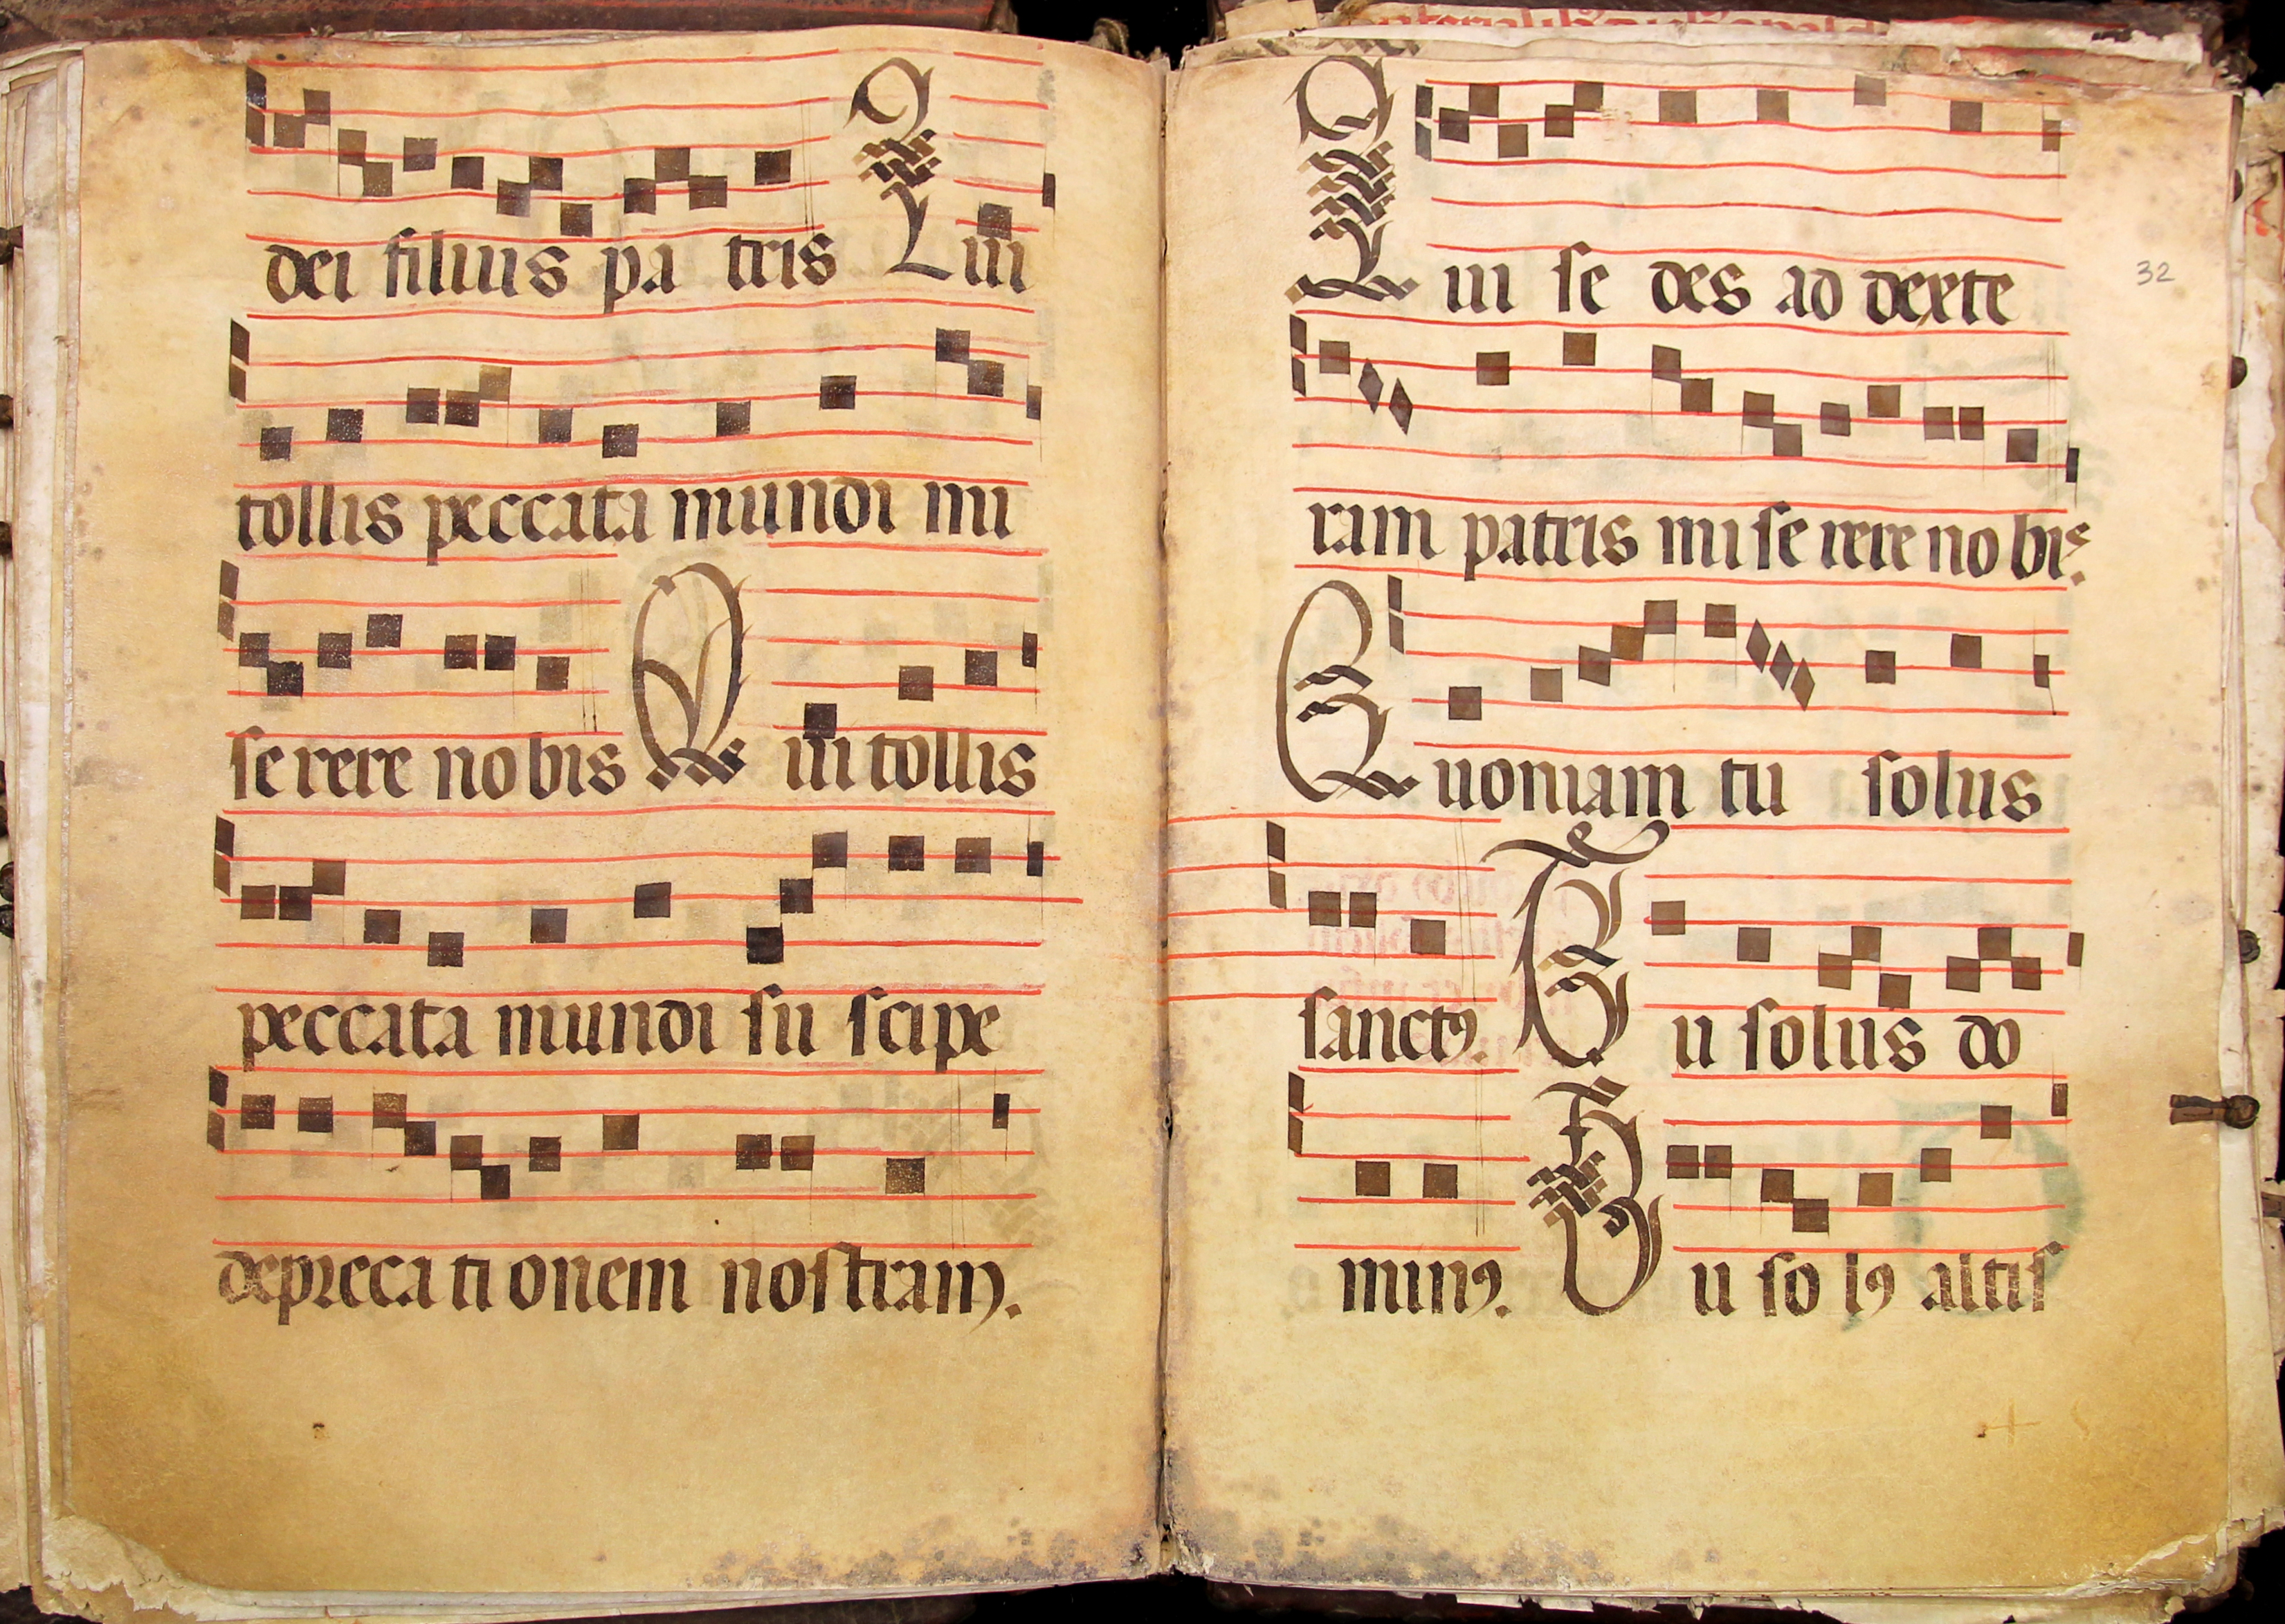 dei filius pa tris Qui
tollis peccata mundi mi
se rere nobis Qui tollis
peccata mundi su scipe
depreca ti onem nostram.
Qui se des ad dexte
32
ram patris mi se rere no bis.
Quoniam tu solus
sanctꝯ. Tu solus do
minꝯ. Tu so lꝯ altis